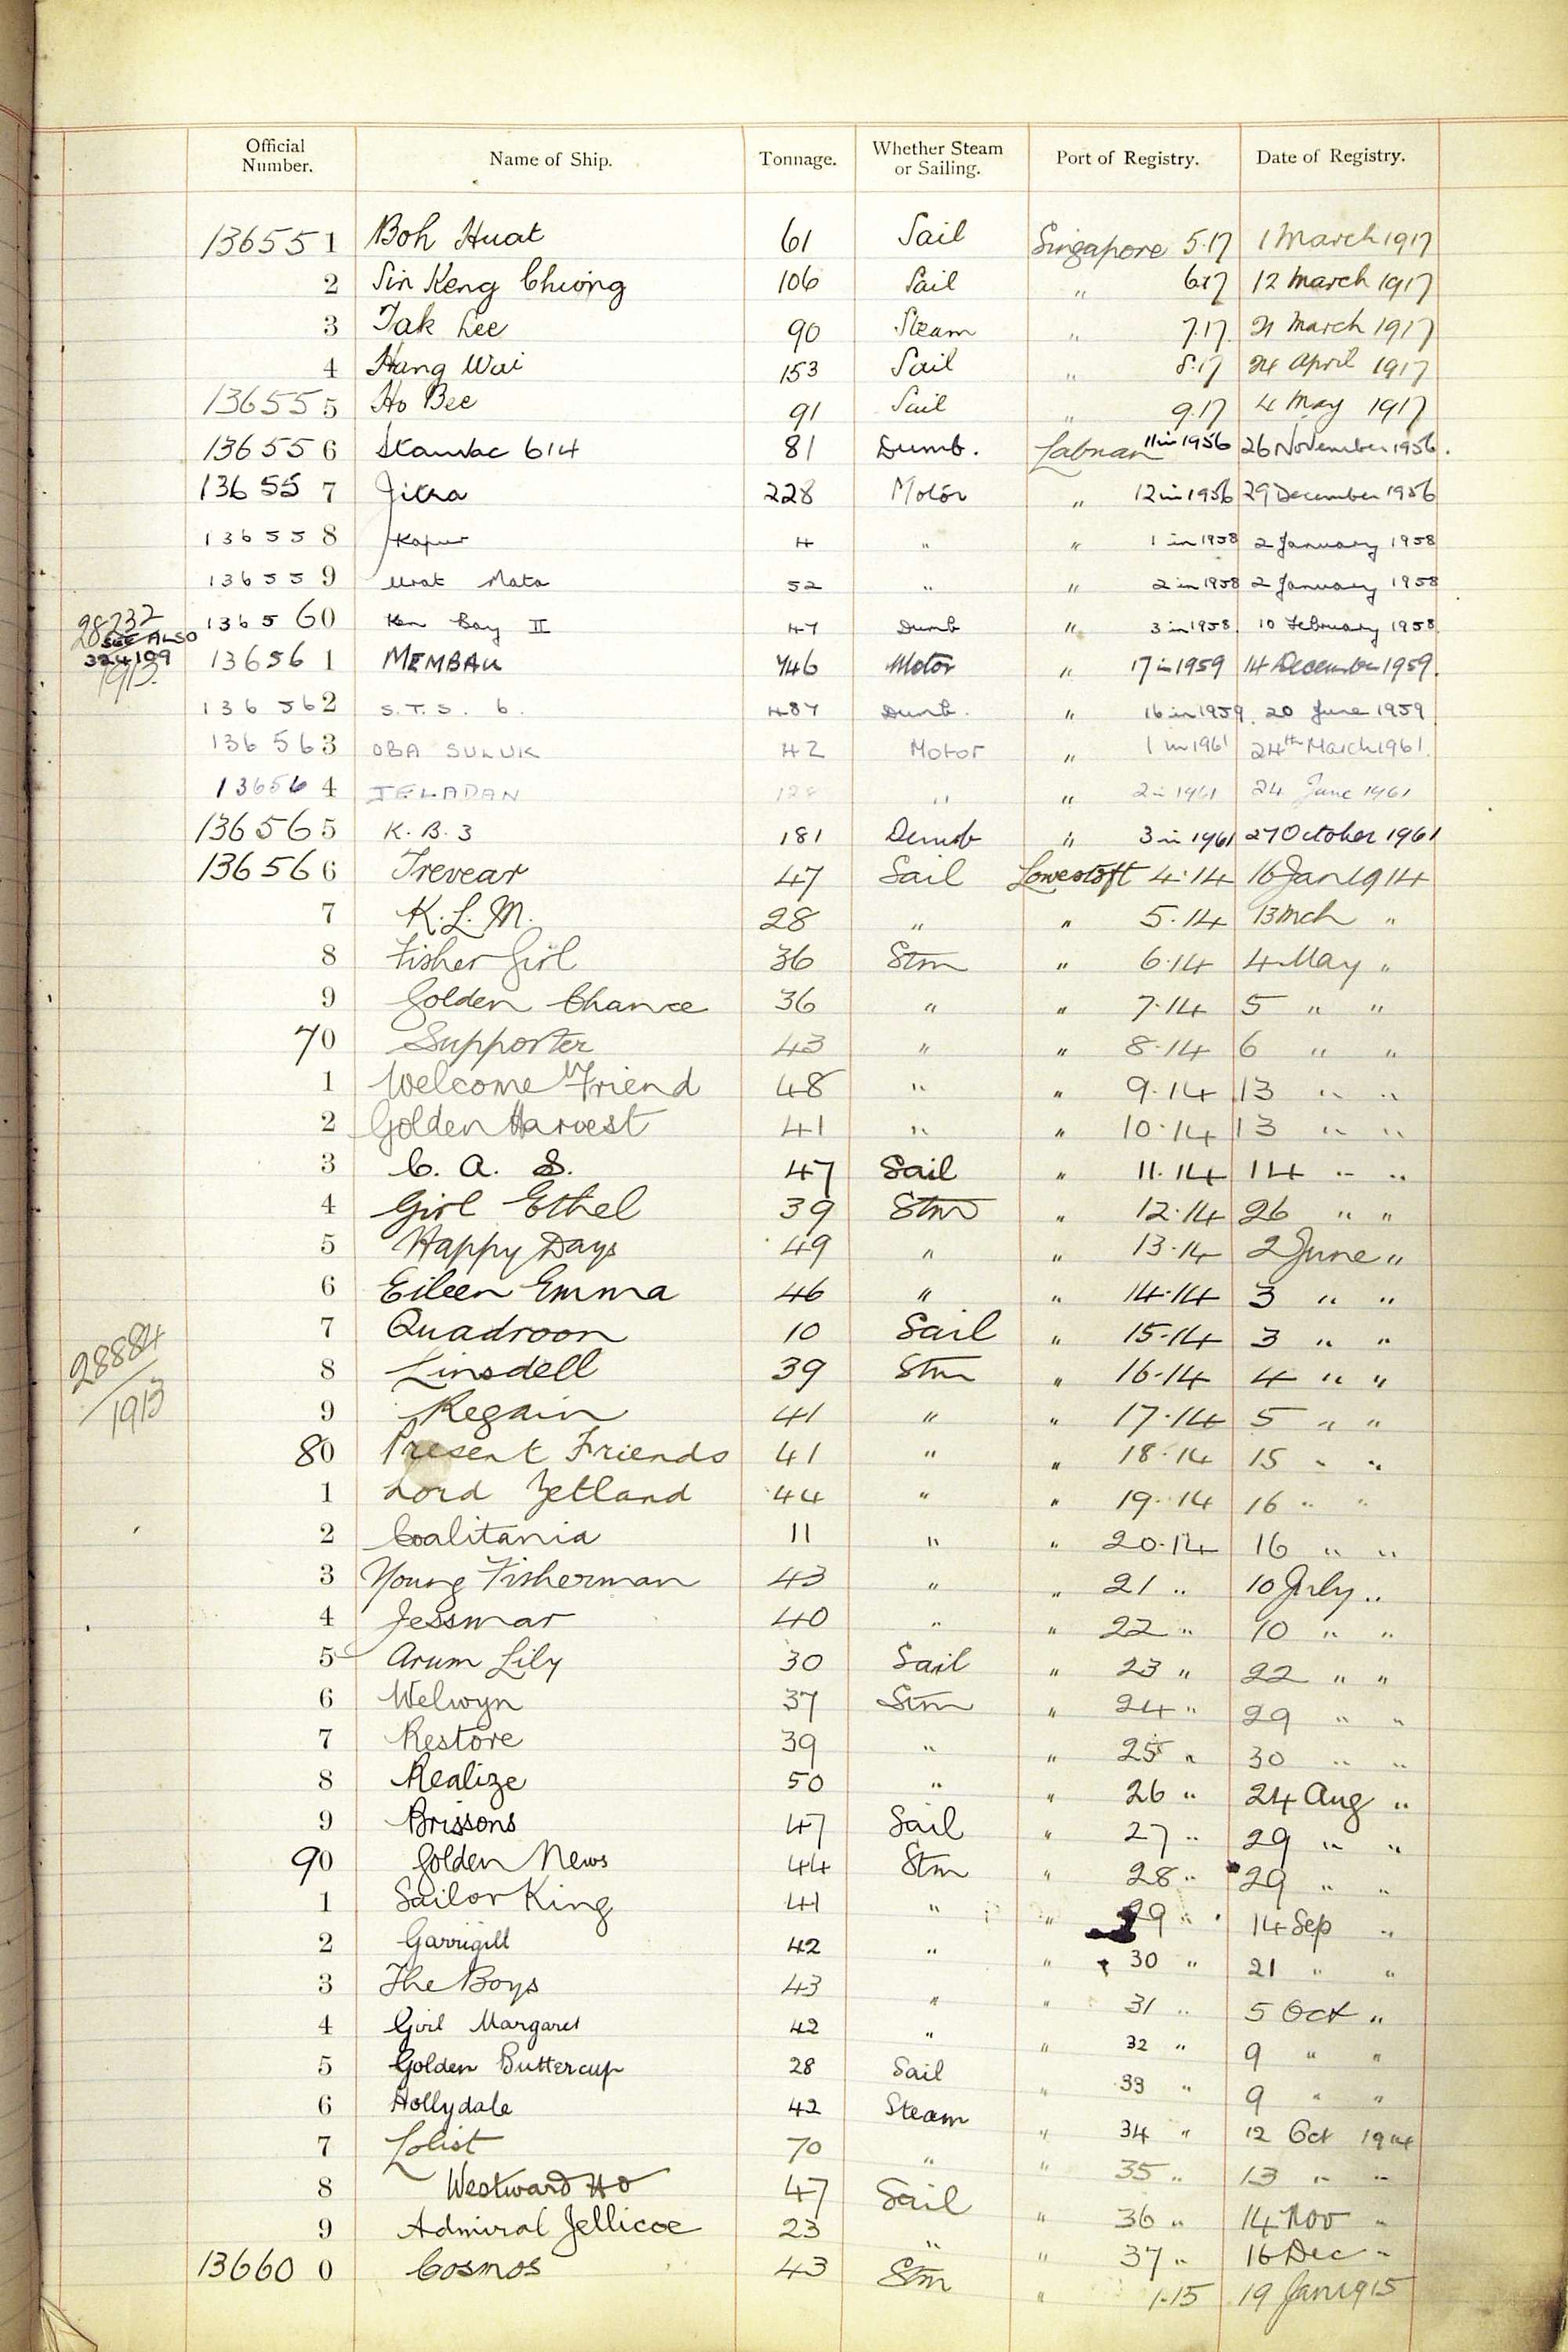 Official Number. Name of Ship. Tonnage. Whether Steam or Sailing. Port of Registry. Date of Registry.
136551 Boh Huat 61 Sail Singapore 5.17 1 March 1917
2 Sin Keng Chiong 106 Sail " 6.17 12 March 1917
3 Tak Lee 90 Steam " 7.17. 21 March 1917
4 Hang Wai 153 Sail " 8.17 24 April 1917
136555 Ho Bee 91 Sail " 9.17 4 May 1917
136556 Stanvac 614 81 Dumb. Labuan 11 in 1956 26 November 1956.
136557 Jitra 228 Motor " 12 in 1956 29 December 1956
136558 Kapur 4 " " 1 in 1958 2 January 1958
136559 Mata 52 " " 2 in 1958 2 January 1958
28232 136560 Ken Bay II 47 Dumb " 3 in 1958 10 February 1958
SEE ALSO
324109 136561 MEMBAU 746 Motor " 17 in 1959 14 December 1959.
1913
136562 S.T.S. 6. 487 Dumb. " 16 in 1959. 20 June 1959
136563 OBA SULUK 42 Motor " 1 in 1961 24th March 1961.
136564 JELADAN 128 " " 2 in 1961 24 June 1961
136565 K.B.3 181 Dumb " 3 in 1961 27 October 1961
136566 Trevear 47 Sail Lowestoft 4.14 16 Jan 1914
7 K.L.M. 28 " " 5.14 13 Mch "
8 Fisher Girl 36 Stm " 6.14 4 May "
9 Golden Chance 36 " " 7.14 5 " "
70 Supporter 43 " " 8.14 6 " "
1 Welcome Friend 48 " " 9.14 13 " "
2 Golden Harvest 41 " " 10.14 13 " "
3 C. A. S. 47 Sail " 11.14 14 " "
4 Girl Ethel 39 Stm " 12.14 26 " "
5 Happy Days 49 " " 13.14 2 June "
6 Eileen Emma 46 " " 14.14 3 " "
7 Quadroon 10 Sail " 15.14 3 " "
28884 8 Linsdell 39 Stm " 16.14 4 " "
1913 9 Regain 41 " " 17.14 5 " "
80 Present Friends 41 " " 18.14 15 " "
1 Lord Zetland 44 " " 19.14 16 " "
2 Coalitania 11 " " 20.14 16 " "
3 Young Fisherman 43 " " 21 " 10 July "
4 Jessmar 40 " " 22 " 10 " "
5 Arum Lily 30 Sail " 23 " 22 " "
6 Welwyn 37 Stm " 24 " 29 " "
7 Restore 39 " " 25 " 30 " "
8 Realize 50 " " 26 " 24 Aug "
9 Brissons 47 Sail " 27 " 29 " "
90 Golden News 44 Stm " 28 " 29 " "
1 Sailor King 41 " " 29 " 14 Sep "
2 Garrigill 42 " " 30 " 21 " "
3 The Boys 43 " " 31 " 5 Oct "
4 Girl Margaret 42 " " 32 " 9 " "
5 Golden Buttercup 28 Sail " 33 " 9 " "
6 Hollydale 42 Steam " 34 " 12 Oct 1914
7 Lolist 70 " " 35 " 13 " "
8 Westward Ho 47 Sail " 36 " 14 Nov "
9 Admiral Jellicoe 23 " " 37 " 16 Dec "
136600 Cosmos 43 Stm " 1.15 19 Jan 1915